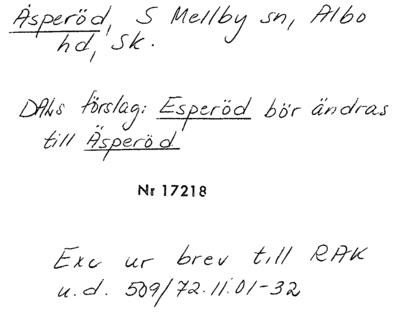 Äsperöd, S Mellby sn, Albo
hd, Sk.
DALs förslag: Esperöd bör ändras
till Äsperöd
Nr 17218
Exc ur brev till RAK
u.d. 509/72.11.01-32